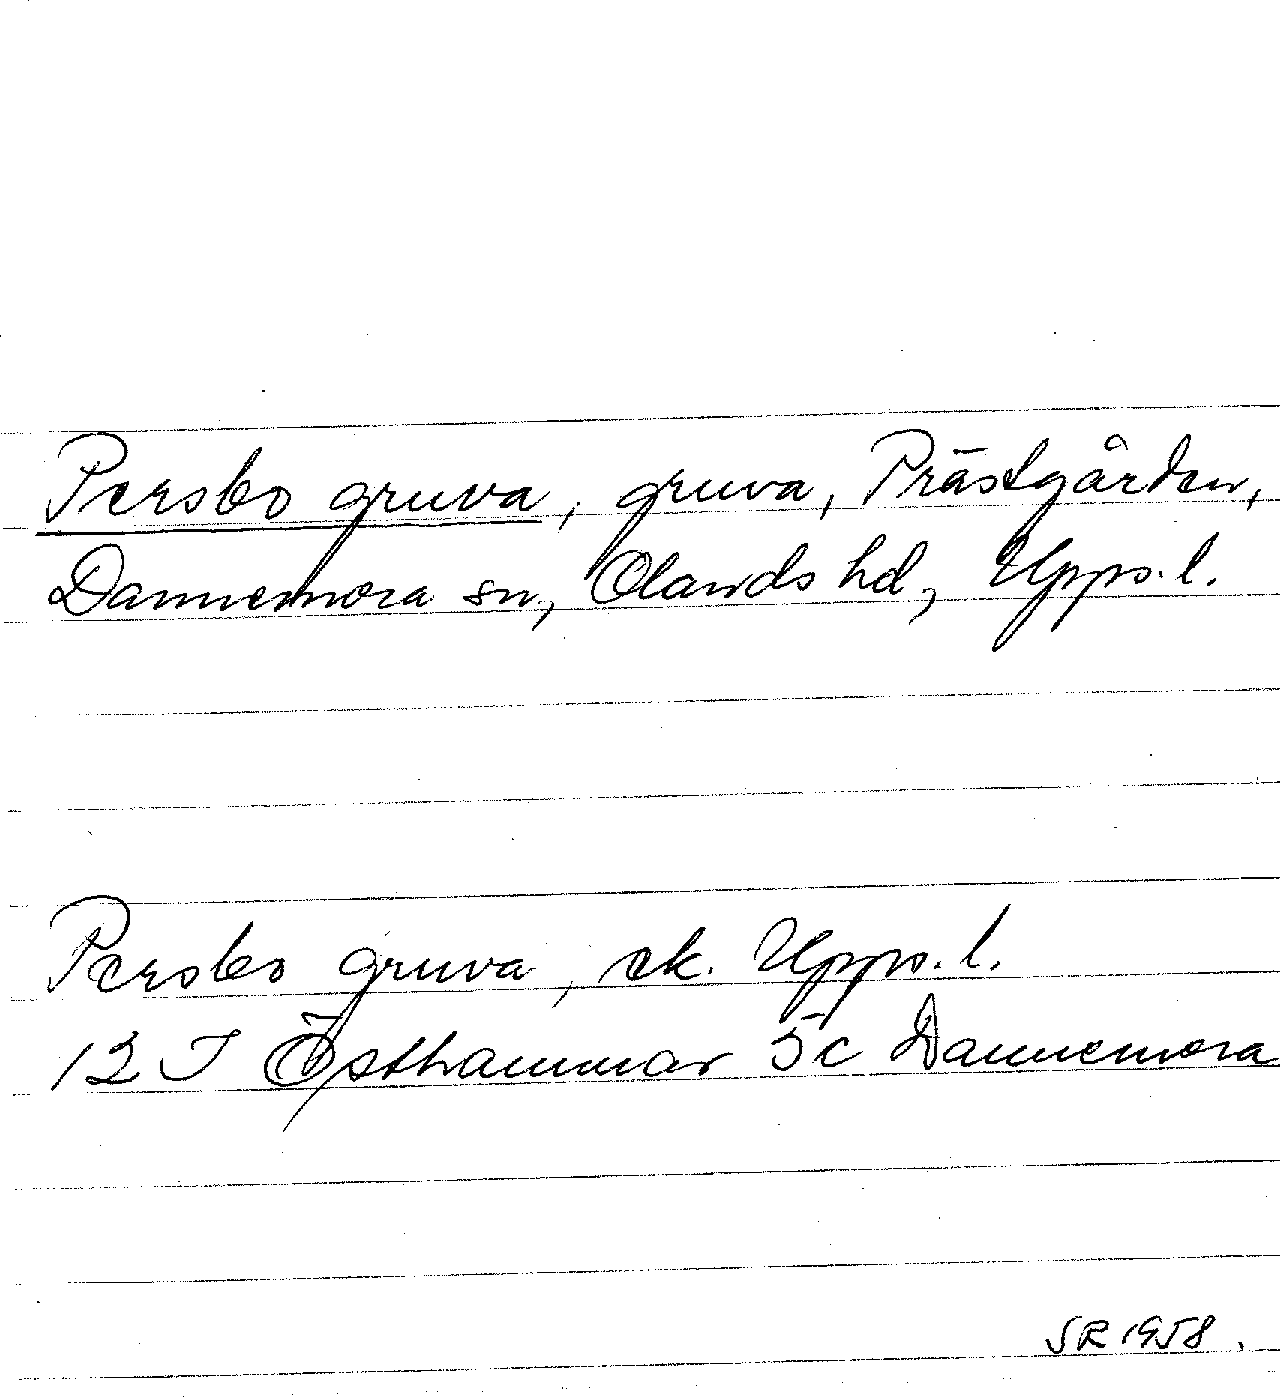 Persbo gruva, gruva, Prästgården,
Dannemora sn, Olands hd, Upps. l.
Persbo gruva, ek. Upps. l.
12 I Östhammar 5c Dannemora
SR 1958.